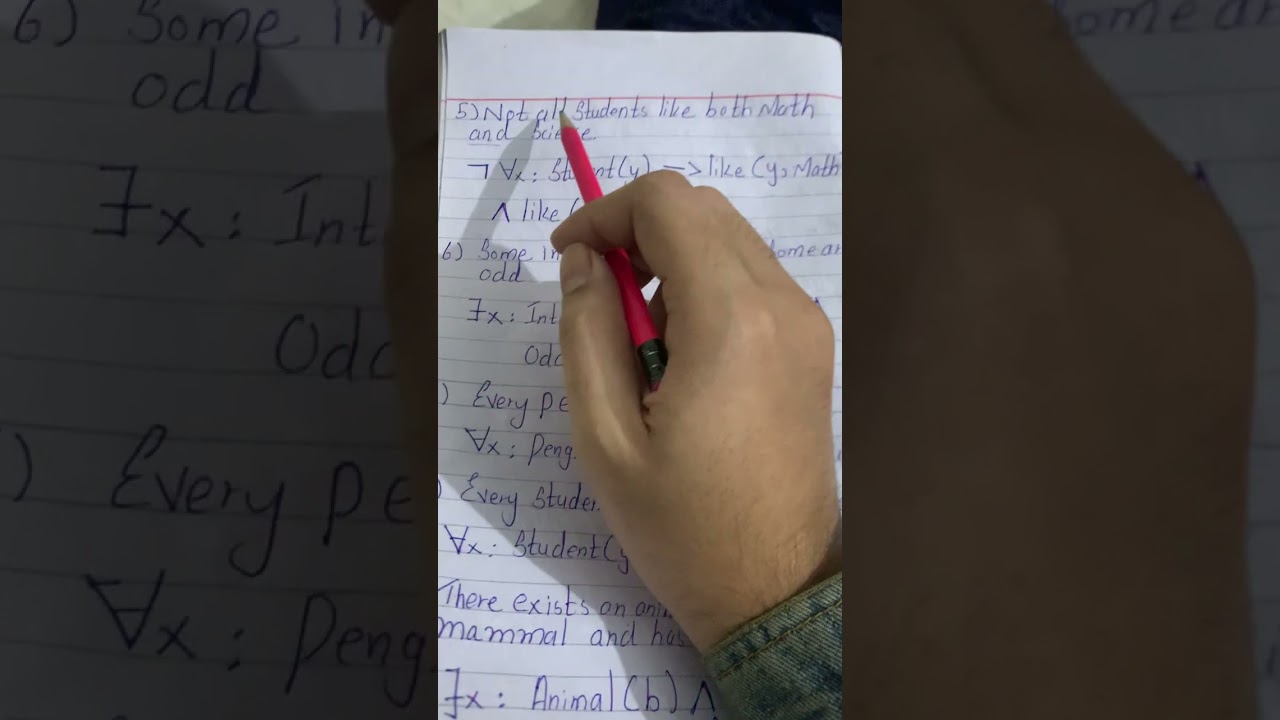 5) Not all Students like both Math
and Science.
¬ ∀x: Student(y) —> like (y, Math
∧ like (
6) Some in
Some ar
odd
∃x: Int
Odd
) Every pe
∀x: Peng
) Every Studen
∀x: Student(y
There exists an anim
mammal and has
∃x: Animal(b) ∧